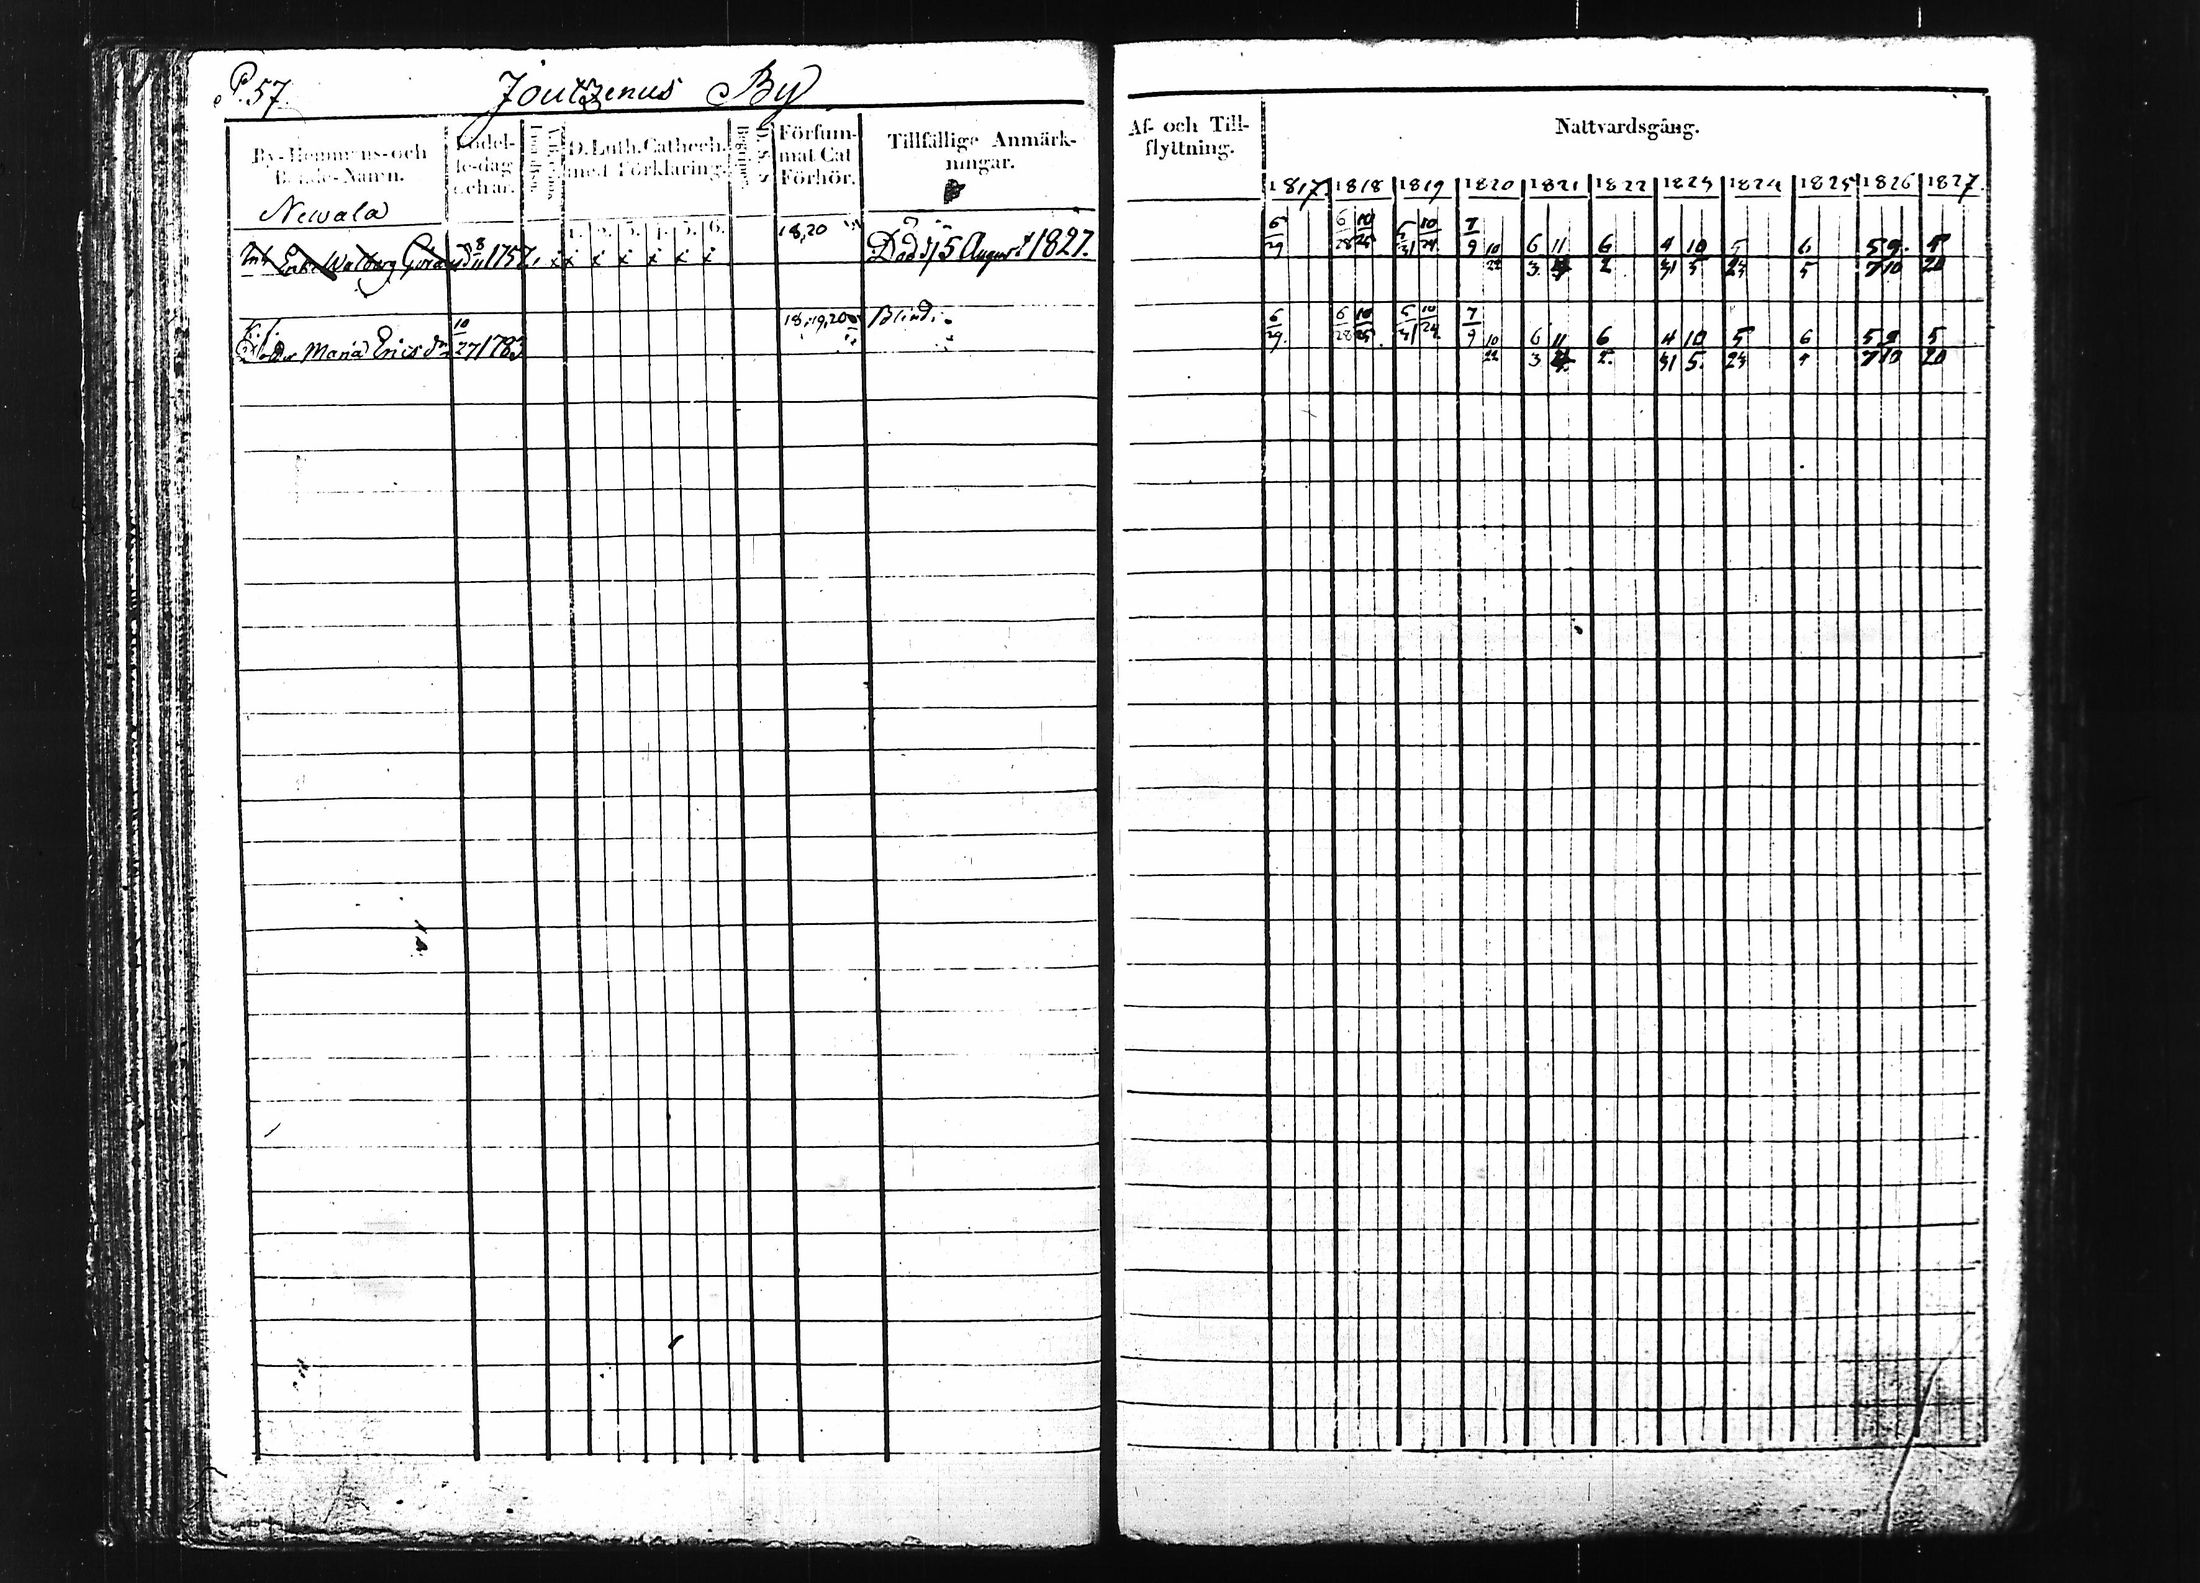 P. 57. Joutzenus By
By- Hemmans- och Bonde-Namn.
Födel-
se-dag
och år.
D. Luth. Cathech.
med Förklaring.
Försum-
mat Cat
Förhör.
Tillfällige Anmärk-
ningar.
Newala
1. 2. 3. 4. 5. 6.
Enk. Walborg 8 1757. 18,20 Död d 15 August 1827.
Maria Ericsdr 10 27 1783 18,19,20 Blind.
Af- och Till-
flyttning.
Nattvardsgång.
1817. 1818 1819 1820 1821 1822 1823 1824 1825 1826 1827.
6 6 10 5 10 7
29 28 25 31 24 9 10 6 11 6 4 10 5 6 5 9. 5
22 3. 2 31 5 23 5 7 10 20
6 6 10 5 10 7
29. 28 25. 31 24 9 10 6 11 6 4 10 5 6 5 9 5
22 3 2. 31 5. 23 7 10 20